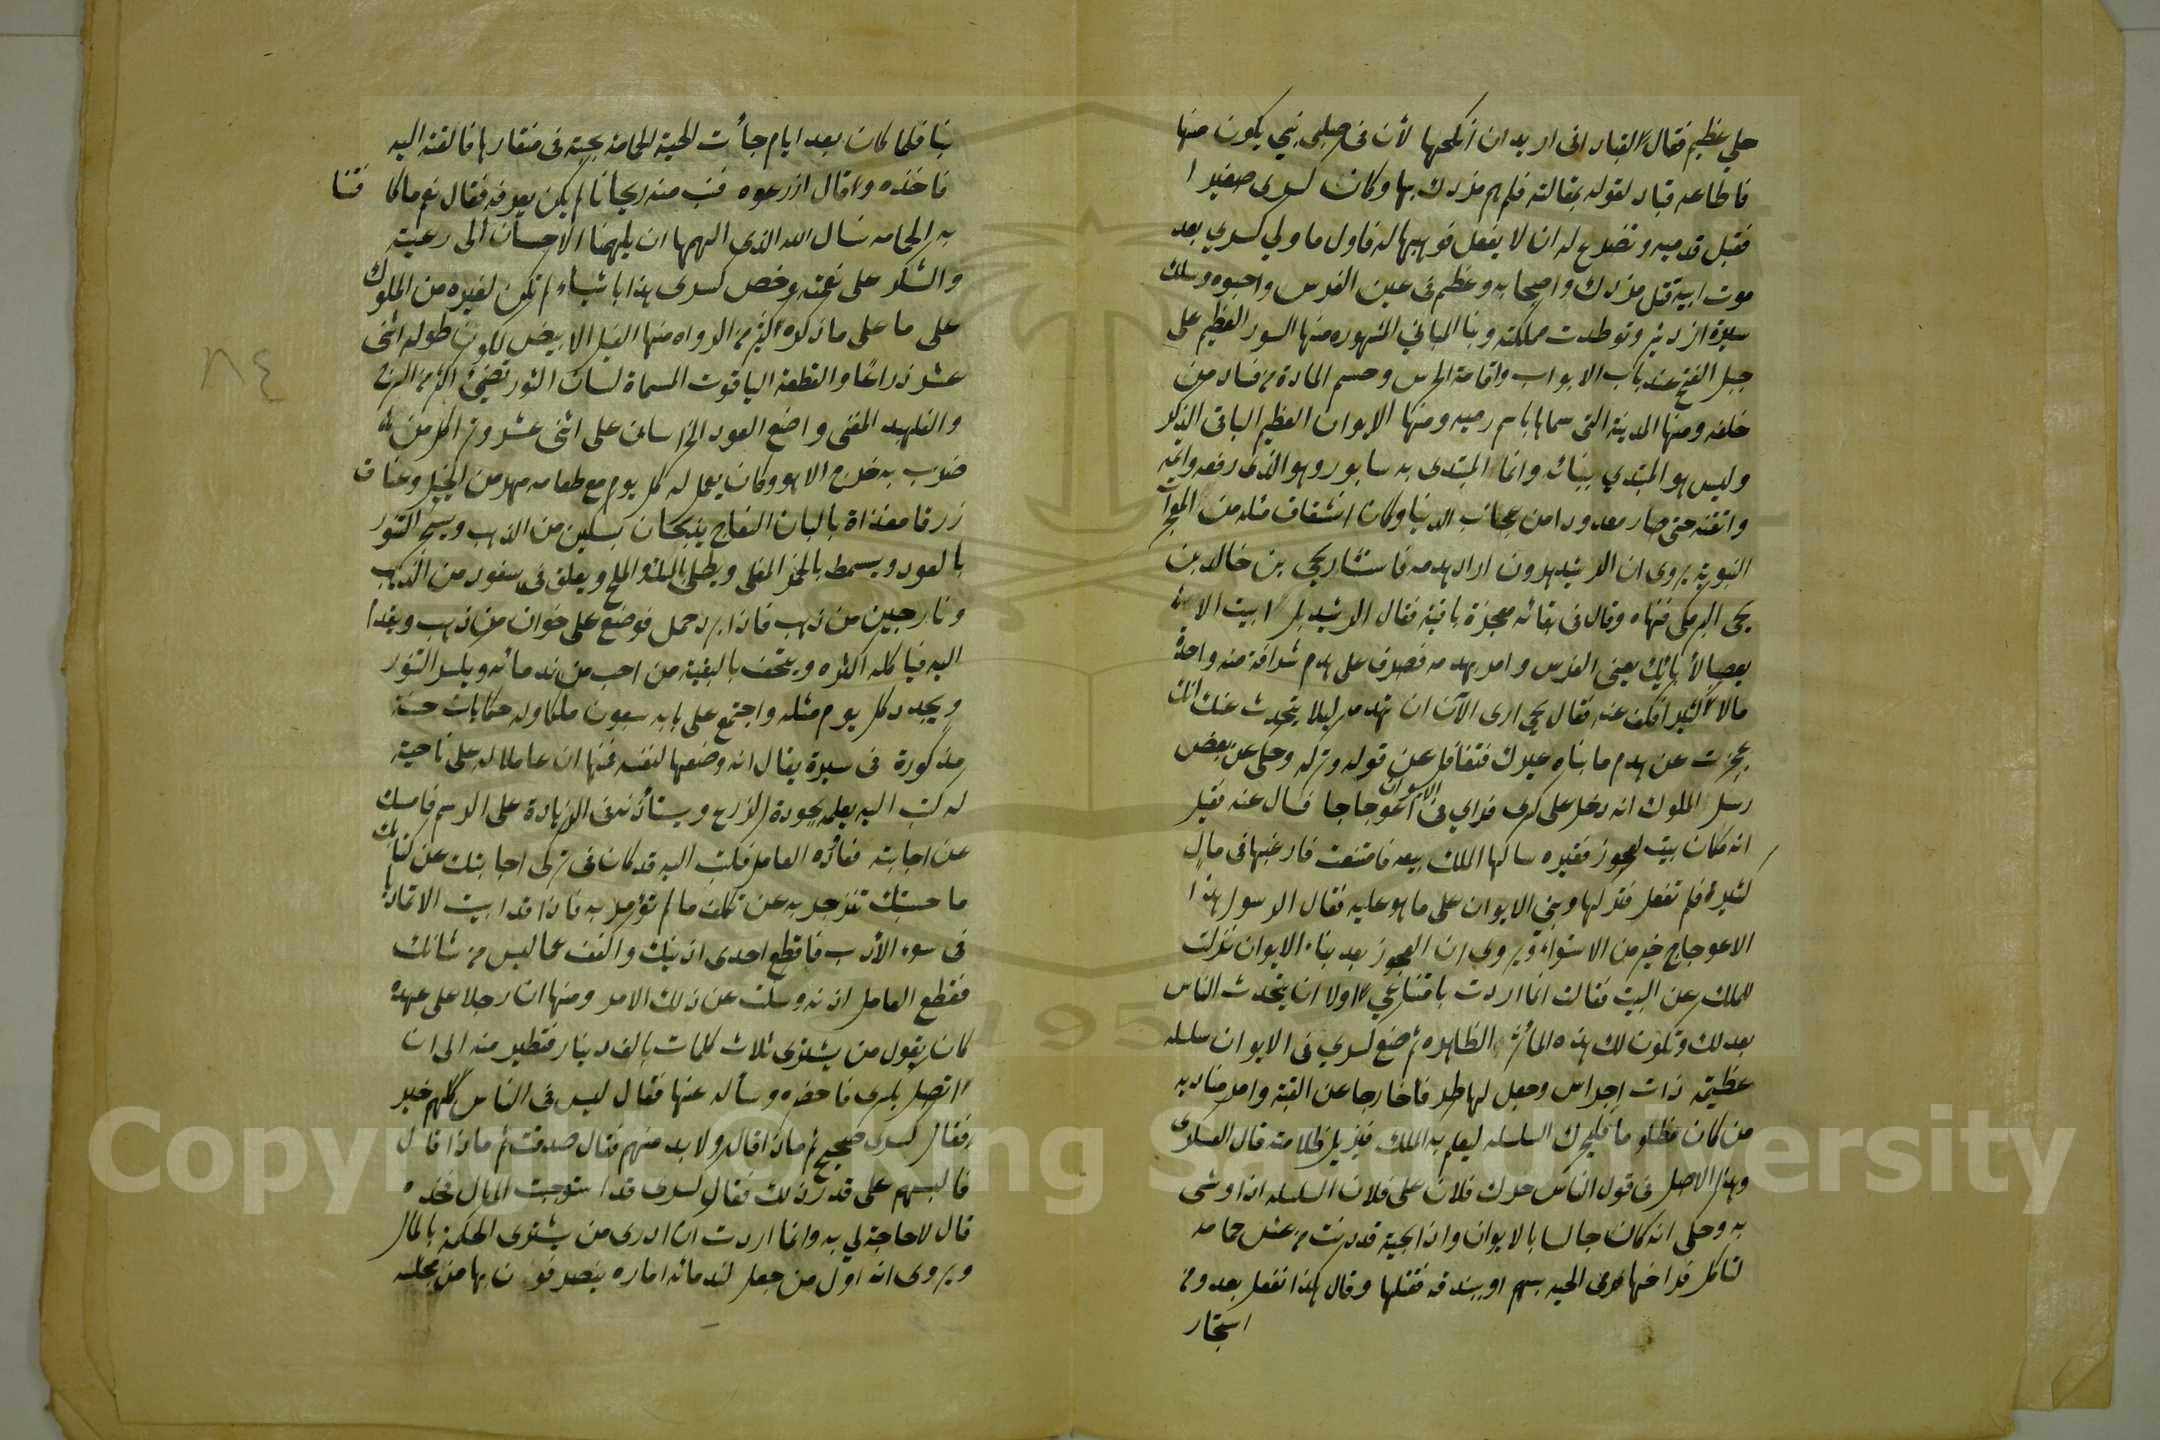 حلي عظيم فقال لقباد انى اريد ان انكحها لأن فى صلبى نبي يكون منها
فاطاعه قباد لقوله بمقالته فلم هم مزدك بها وكان كسرى صغيرا
فقبل قدميه وتضرع له ان لا يفعل فوهبها له فاول ما ولي كسري بعد
موت ابيه قتل مزدك واصحابه وعظم فى عين الفرس واحبوه وسلك
سيرة ازدشير وتوطدت مملكته وبنا المبانى المشهوره منها السور العظيم على
جبل الفتح عند باب الابواب واقامة الحرس وحسم المادة من فساد من
خلفه ومنها المدينة التى سماها باسم رميه ومنها الايوان العظيم الباقى الذكر
وليس هو المبتدي ببنائه وانما المبتدى به سابور وهو الذى رفعه واتمه
واتقنه حتى صار معدودا من عجائب الدنيا وكان انشقاقه مثله من المعجزات
النبوية يروى ان الرشيد هرون اراد هدمه فاستشار يحيى بن خالد بن
يحيى البرمكى فنهاه وقال فى بقائه معجزة باقية فقال الرشيد بل ابيت الا
تعصبا لأبائك يعنى الفرس وامر بهدمه فصرف على هدم شرافة منه واحدة
مالا كثيرا فكف عنه فقال يحيى ارى الآن ان تهدمه ليلا يتحدث عنك انك
عجزت عن هدم ما بناه غيرك فتغافل عن قوله وتركه وحكى عن بعض
رسل الملوك انه دخل على كسرى فراي فى الايوان اعوجاجا فسأل عنه فقيل
انه كان بيت لعجوز فقيره سالها الملك بيعه فامتنعت فارغبها فى مال
كثيرة فلم تفعل فتركها وبني الايوان على ما هو عليه فقال الرسول هذا
الاعوجاج خير من الاستواء ويروى ان العجوز بعد بناء الايوان نزلت
للملك عن البيت فقالت انما اردت بامتناعي اولا ان يتحدث الناس
بعدلك وتكون لك هذه المأثرة الظاهره ثم صنع كسري فى الايوان سلسله
عظيمة ذات اجراس وجعل لها طرفا خارجا عن القبة وامر مناديه
من كان مظلوما فليحرك السلسله ليعلم به الملك فيزيل ظلامته قال العسكرى
وهذا الاصل فى قول الناس حرك فلان على فلان السلسله اذا وشى
به وحكى انه كان جالسا بالايوان واذا بحية قد دنت من عش حمامه
لتاكل فراخها فرمى الحيه بسهم او بندقه فقتلها وقال هكذا نفعل بعدو من
استجار
بنا فلما كان بعد ايام جاءت الحية الحمامة بحبة فى منقارها فالقته اليه
فاخذه وقال ازرعوه فنبت منه ريحانا لم يكن يعرفه فقال نعم ما كافتنا
به الحمامه نسال الله الذى الهمها ان يلهمنا الاحسان الى رعيته
والشكر على نعمته وخص كسرى هذا باشياء لم تكن لغيره من الملوك
على ما على ما ذكره اكثر الرواه منها الفيل الابيض يكون طوله اثنى
عشر ذراعا والقطعة الياقوت المسماة لسان الثور تضيئ اكثر من السرج
والفلهبد المغنى واضع العود الخراسان على اثنى عشر وتر
ضرب به خارج الاهو وكان يعمل له كل يوم مع طعامه مهر من الخيل وعناق
زرقا مغذاة بالبان النعاج يذبحان بسكين من الذهب ويسجر التنور
بالعود ويسمط بالخمر المغلى ويطلى بالمسك والملح ويعلق فى سفود من الذهب
ونارجين من ذهب فاذا برد حمل فوضع على خوان من ذهب ويغدا
اليه فياكله اكثره ويتحف بالبقية من احب من ندمائه ويكسر التنور
ويجدد كل يوم مثله واجتمع على بابه سبعون ملكا وله حكايات حسنة
مذكورة فى سيرة يقال انه وضعها لنفسه فمنها ان عاملا له على ناحية
له كتب اليه يعلمه بجودة الزرع ويستأذنه فى الزيادة على الرسم فامسك
عن اجابته فعاوده العامل فكتب اليه قد كان فى تركى اجابتك عن كتابك
ما حسبتك تنزجر به عن تكلف ما لم تؤمر به فاذا قد ابيت الا تماديا
فى سوء الأدب فاقطع احدى اذنيك واكفف عما ليس من شانك
فقطع العامل اذنه وسكت عن ذلك الامر ومنها ان رجلا على عهده
كان يقول من يشترى ثلاث كلمات بالف دينار فتطير منه الى ان
اتصل بكسرى فاحضره وسأله عنها فقال ليس فى الناس كلهم خير
فقال كسرى صحيح ثم ماذا قال ولا بد منهم فقال صدقت ثم ماذا قال
فالبسهم على قدر ذلك فقال كسرى قد استوجبت المال فخذه
قال لا حاجة لي به وانما اردت ان ادرى من يشترى الحكمة بالمال
ويروى انه اول من جعل لندمائه اماره ينصرفون بها من مجلسه
٨٤
Copyright © King Saud University
1957